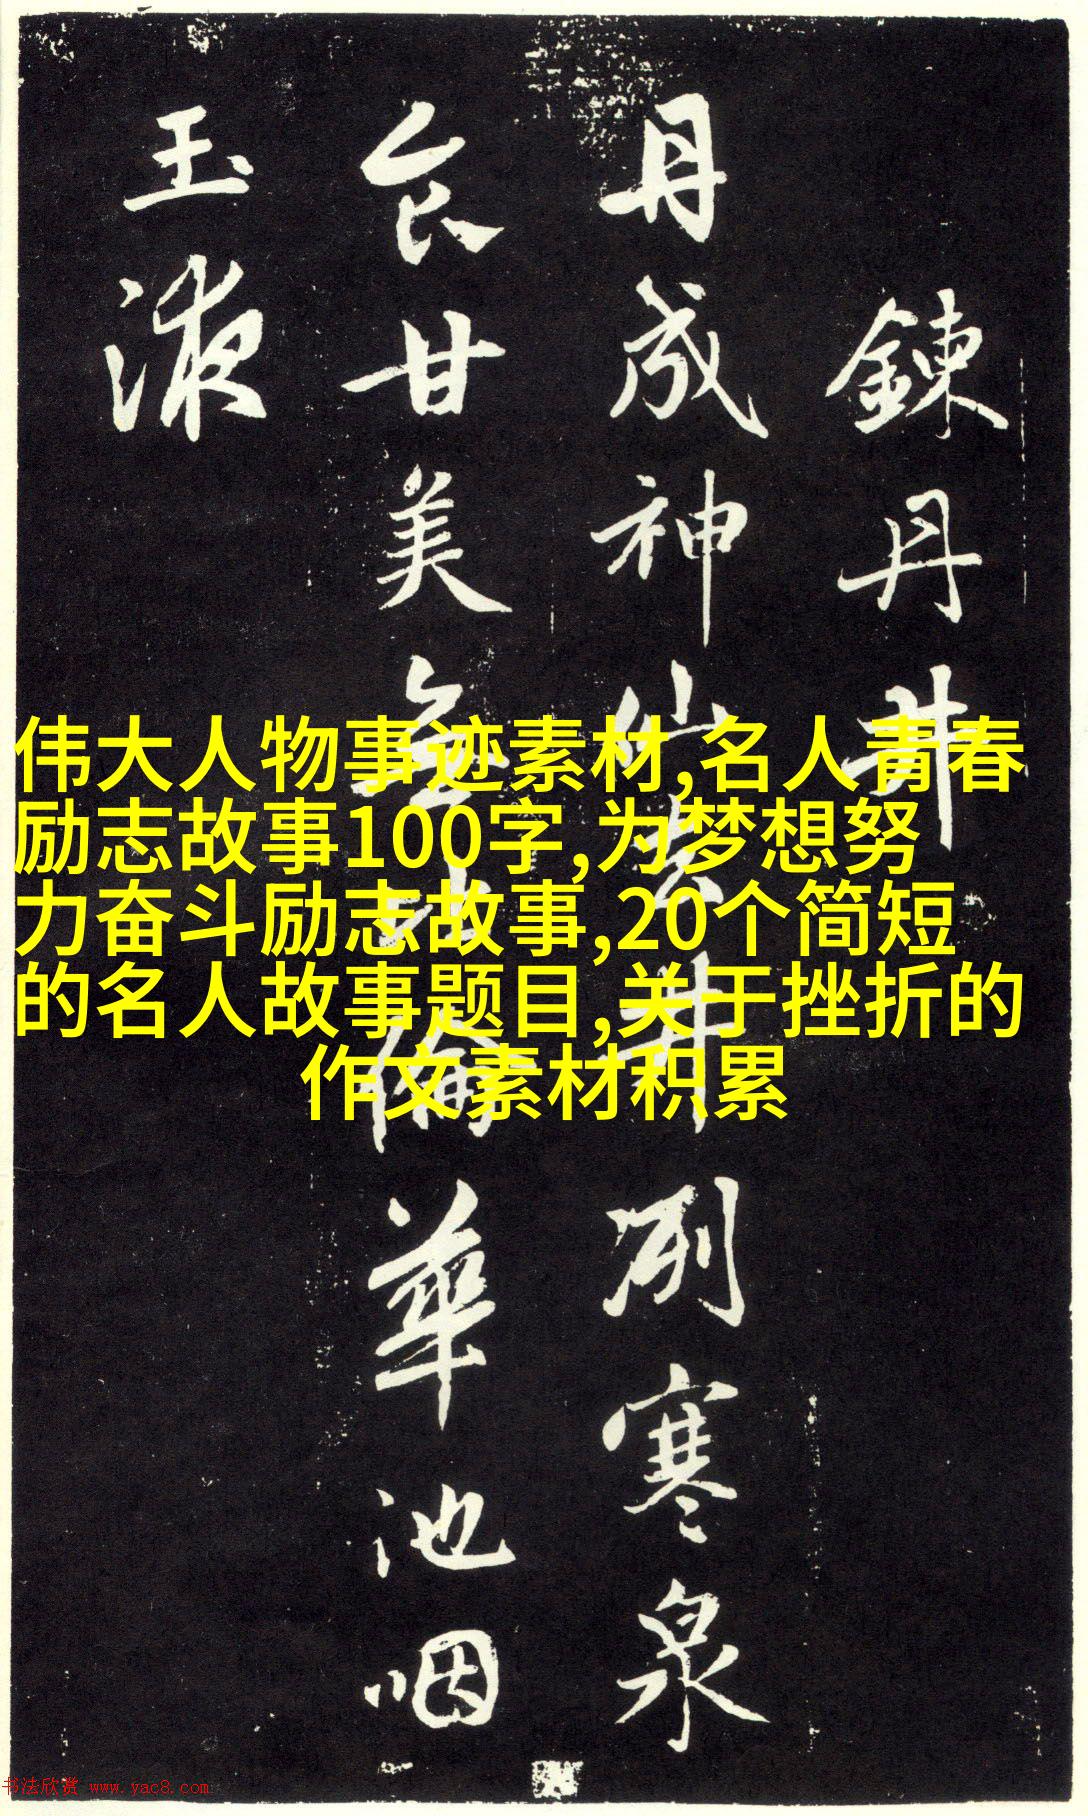 鍊丹井
丹成神仙去井冽寒泉
食甘美無比倫華池咽
玉液
伟大人物事迹素材,名人青春
励志故事100字,为梦想努
力奋斗励志故事,20个简短
的名人故事题目,关于挫折的
作文素材积累
书法欣赏 www.yac8.com